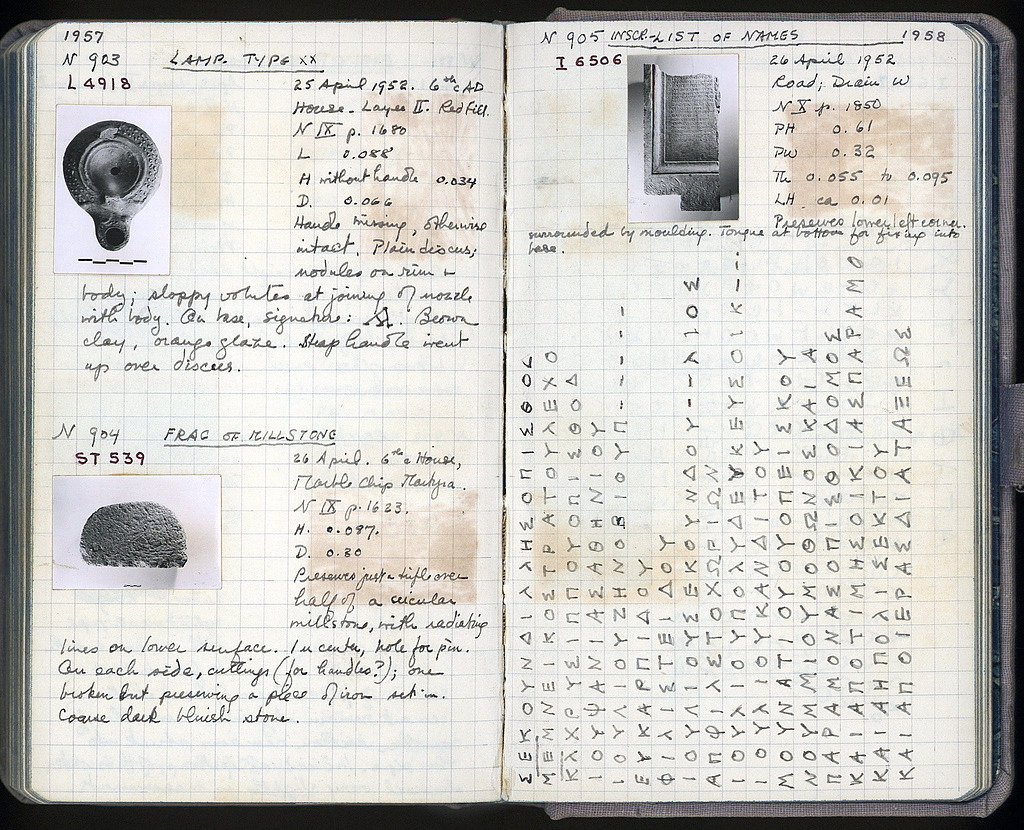 1957
N 903 LAMP. TYPE XX
L 4918
25 April 1952. 6th c AD
House. Layer II. Red Fill.
N IX p. 1680
L 0.088
H without handle 0.034
D. 0.066
Handle missing, otherwise
intact. Plain discus;
nodules on rim +
body; sloppy volutes at joining of nozzle
with body. On base, signature: Brown
clay, orange glaze. Strap handle went
up over discus.
N 904 FRAG OF MILLSTONE
ST 539
26 April. 6th c House,
Marble Chip
N IX p. 1623.
H. 0.087.
D. 0.30
Preserves just a trifle over
half of a circular
millstone, with radiating
lines on lower surface. In center, hole for pin.
On each side, cuttings (for handles?); one
broken but preserving a piece of iron set in.
Coarse dark bluish stone.
N 905 INSCR.-LIST OF NAMES 1958
I 6506
26 April 1952
Road; Drain W
N X p. 1850
PH 0.61
PW 0.32
Th 0.055 to 0.095
LH ca 0.01
Preserves lower left corner.
surrounded by moulding. Tongue at bottom for fixing into
base.
ΣΕΚΟΥΝΔΙΛΛΗΣΟΠΙΣΘΟ
ΜΕΜΝΕΙΚΟΣΤΡΑΤΟΥΛΕΧΟ
ΚΛΧΡΥΣΙΠΠΟΥΟΠΙΣΘΟΔ
ΙΟΥΨΑΝΙΑΣΑΘΗΝΙΟΥ
ΙΟΥΛΙΟΥΖΗΝΟΒΙΟΥΠ----
ΕΥΚΑΡΠΙΔΟΥ
ΦΙΛΙΣΤΕΙΔΟΥ
ΙΟΥΛΙΟΥΣΕΚΟΥΝΔΟΥ--ΛΙΟΣ
ΑΠΦΙΛΙΣΤΟΧΩΡΙΩΝ
ΙΟΥΛΙΟΥΠΟΛΥΔΕΥΚΕΥΣΟΙΚ---
ΙΟΥΛΙΟΥΚΑΝΔΙΤΟΥ
ΜΟΥΝΑΤΙΟΥΥΟΠΕΙΣΚΟΥ
ΝΟΥΜΜΙΟΥΜΟΘΩΝΟΣΚΑΙΑ
ΠΑΡΑΜΟΝΑΣΟΠΙΣΘΟΔΟΜΟΣ
ΚΑΙΑΠΟΤΙΜΗΣΟΙΚΙΑΣΠΑΡΑΜΟ
ΚΑΙΑΗΠΟΛΙΣΕΚΤΟΥ
ΚΑΙΑΠΟΙΕΡΑΣΔΙΑΤΑΞΕΩΣ